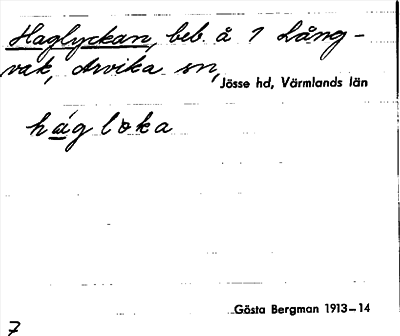 Haglyckan, beb. å 1 Lång-
vak, Arvika sn,
Jösse hd, Värmlands län
hág loka
Gösta Bergman 1913–14
7